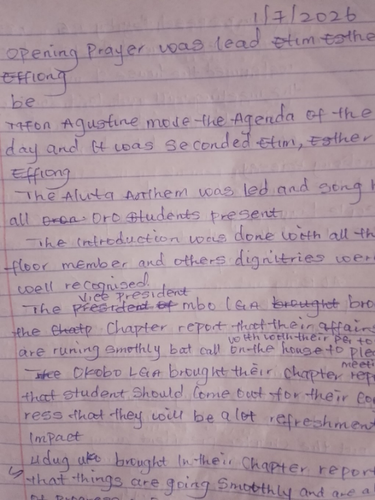 1/7/2026
Opening Prayer was lead Etim Esthe
Effiong
be
Mfon Agustine move the Agenda of the
day and it was seconded Etim, Esther
Effiong
The Aluta Anthem was led and song
all Oron Oro students present
The introduction was done with all th
floor member and others dignitries were
well recognised
Vice President
The president of mbo LGA brought bro
the Chapter report that their affairs
with with their per to
are runing smothly bat call on the house to ple
meeti
The OKOBO LGA brought their chapter rep
that student should come out for their co
ress that they will be a lot refreshment
Impact
Udug uko brought in their Chapter report
that things are going smoothly and are a